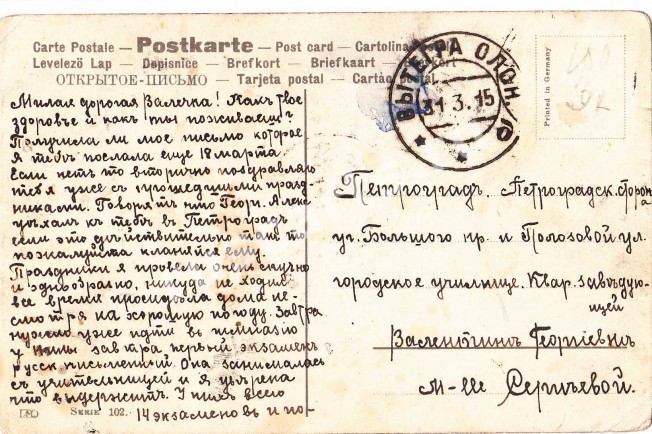 Carte Postale — Postkarte — Post card — Cartolina postale
Levelező Lap — Dopisnice — Brefkort — Briefkaart — Brevkort
ОТКРЫТОЕ-ПИСЬМО — Tarjeta postal — Cartão postal
ВЫТЕГРА ОЛОН. Г.
31 3. 15
Printed in Germany
Милая дорогая Валечка! Какъ твое
здоровье и какъ ты поживаешь?
Получила ли мое письмо которое
я тебѣ послала еще 18 марта.
Если нетъ то вторично поздравляю
тебя уже съ прошедшими празд-
никами. Говорятъ что Георг. Алекс
уѣхалъ къ тебѣ въ Петроградъ
если это дѣйствительно такъ то
пожалуйста кланяйся ему.
Праздники я провела очень скучно
и однообразно, никуда не ходила
все время просидѣла дома не-
смотря на хорошую погоду. Завтра
нужно уже идти въ гимназію
у Нины завтра первый экзаменъ
русск. письменный. Она занималась
съ учительницей и я увѣрена
что выдержитъ. У нихъ всего
14 экзаменовъ и по-
Петроградъ. Петроградск. сторона
уг. Большого пр. и Полозовой ул.
городское училище. Квар. завѣдую-
щей
Валентинѣ Георгіевнѣ
М-lle Сергѣевой.
SERIE 102.